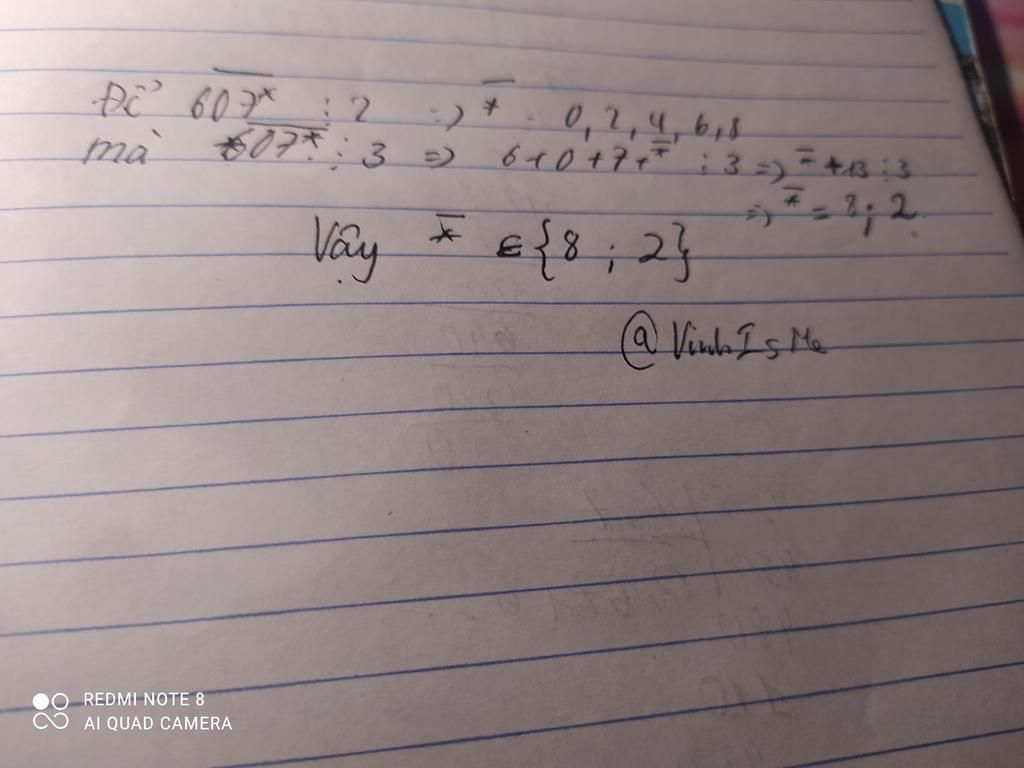 Để 607* ⋮ 2 => * = 0, 2, 4, 6, 8
mà 607* ⋮ 3 => 6+0+7+* ⋮ 3 => * + 13 ⋮ 3
=> * = 8; 2
Vậy * ∈ {8 ; 2}
@VinhIsMe
REDMI NOTE 8
AI QUAD CAMERA